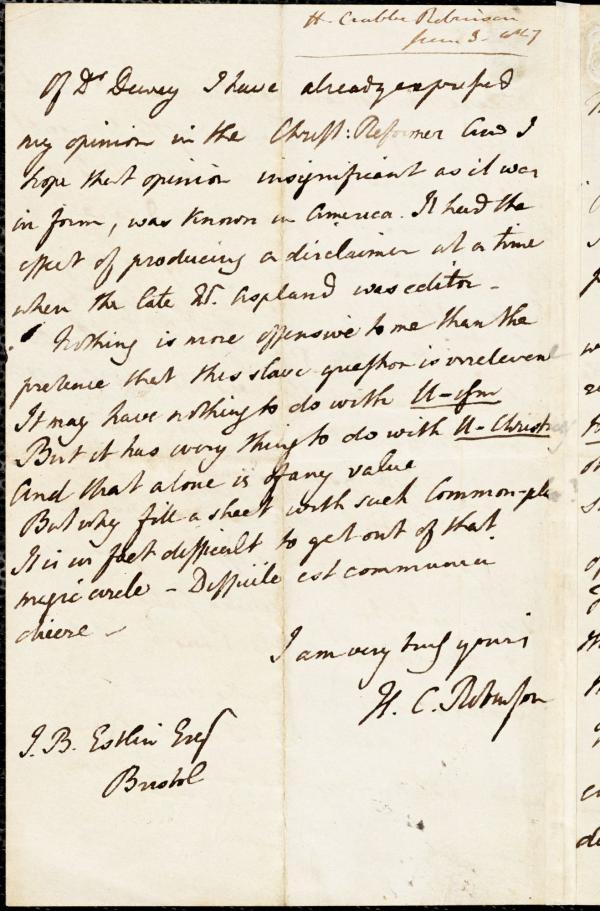 H. Crabbe Robinson
June 3. 1847
Of Dr Dewey I have already expressed
my opinion in the Christ: Reformer and I
hope that opinion insignificant as it was
in form, was known in America. It had the
effect of producing a disclaimer at a time
when the late Mr. Aspland was editor -
Nothing is more offensive to me than the
pretence that this slave question is irrelevent
It may have nothing to do with U-ism
But it has every thing to do with U-Christ
And that alone is of any value
But why fill a sheet with such Common-pla
It is in fact difficult to get out of that
magic circle - Difficile est communia
dicere -
I am very truly yours
H. C. Robinson
J. B. Estlin Esq
Bristol